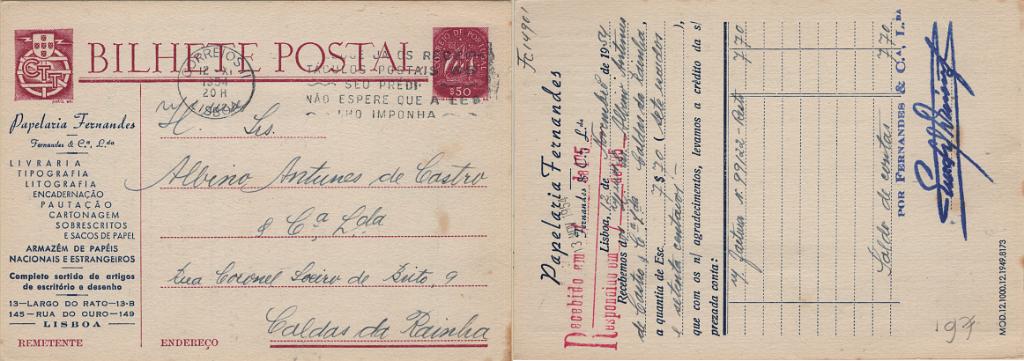 BILHETE POSTAL
CTT
$50
CORREIOS
12 XI
1954
20 H
LISBOA
SEU PREDI
NÃO ESPERE QUE A LEI
LHO IMPONHA
Papelaria Fernandes
Fernandes & C.ª, L.da
LIVRARIA
TIPOGRAFIA
LITOGRAFIA
ENCADERNAÇÃO
PAUTAÇÃO
CARTONAGEM
SOBRESCRITOS
E SACOS DE PAPEL
ARMAZÉM DE PAPÉIS
NACIONAIS E ESTRANGEIROS
Completo sortido de artigos
de escritório e desenho
13-LARGO DO RATO-13-B
145-RUA DO OURO-149
LISBOA
REMETENTE
Srs.
Albino Antunes de Castro
& Cª, Lda
Rua Coronel Soeiro de Brito, 9
Caldas da Rainha
ENDEREÇO
Fc 14901
Papelaria Fernandes
Fernandes & C.ª, L.da
Recebido em
Respondido em
Lisboa, 12 de Novembro de 1954
Recebemos d Albino Antunes
de Castro & Cª Lda Caldas da Rainha
a quantia de Esc. 7$70 (sete escudos
e setenta centavos) —
que com os n/ agradecimentos, levamos a crédito da s/
prezada conta:
7.70
Saldo de contas 7.70
POR FERNANDES & C.A, L.DA
MOD.12.1000.12.1949.8173